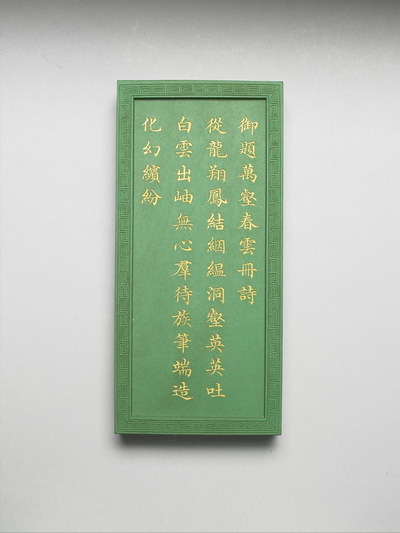 御題萬壑春雲冊詩
從龍翔鳳結絪緼洞壑英英吐
白雲出岫無心羣待族筆端造
化幻繽紛